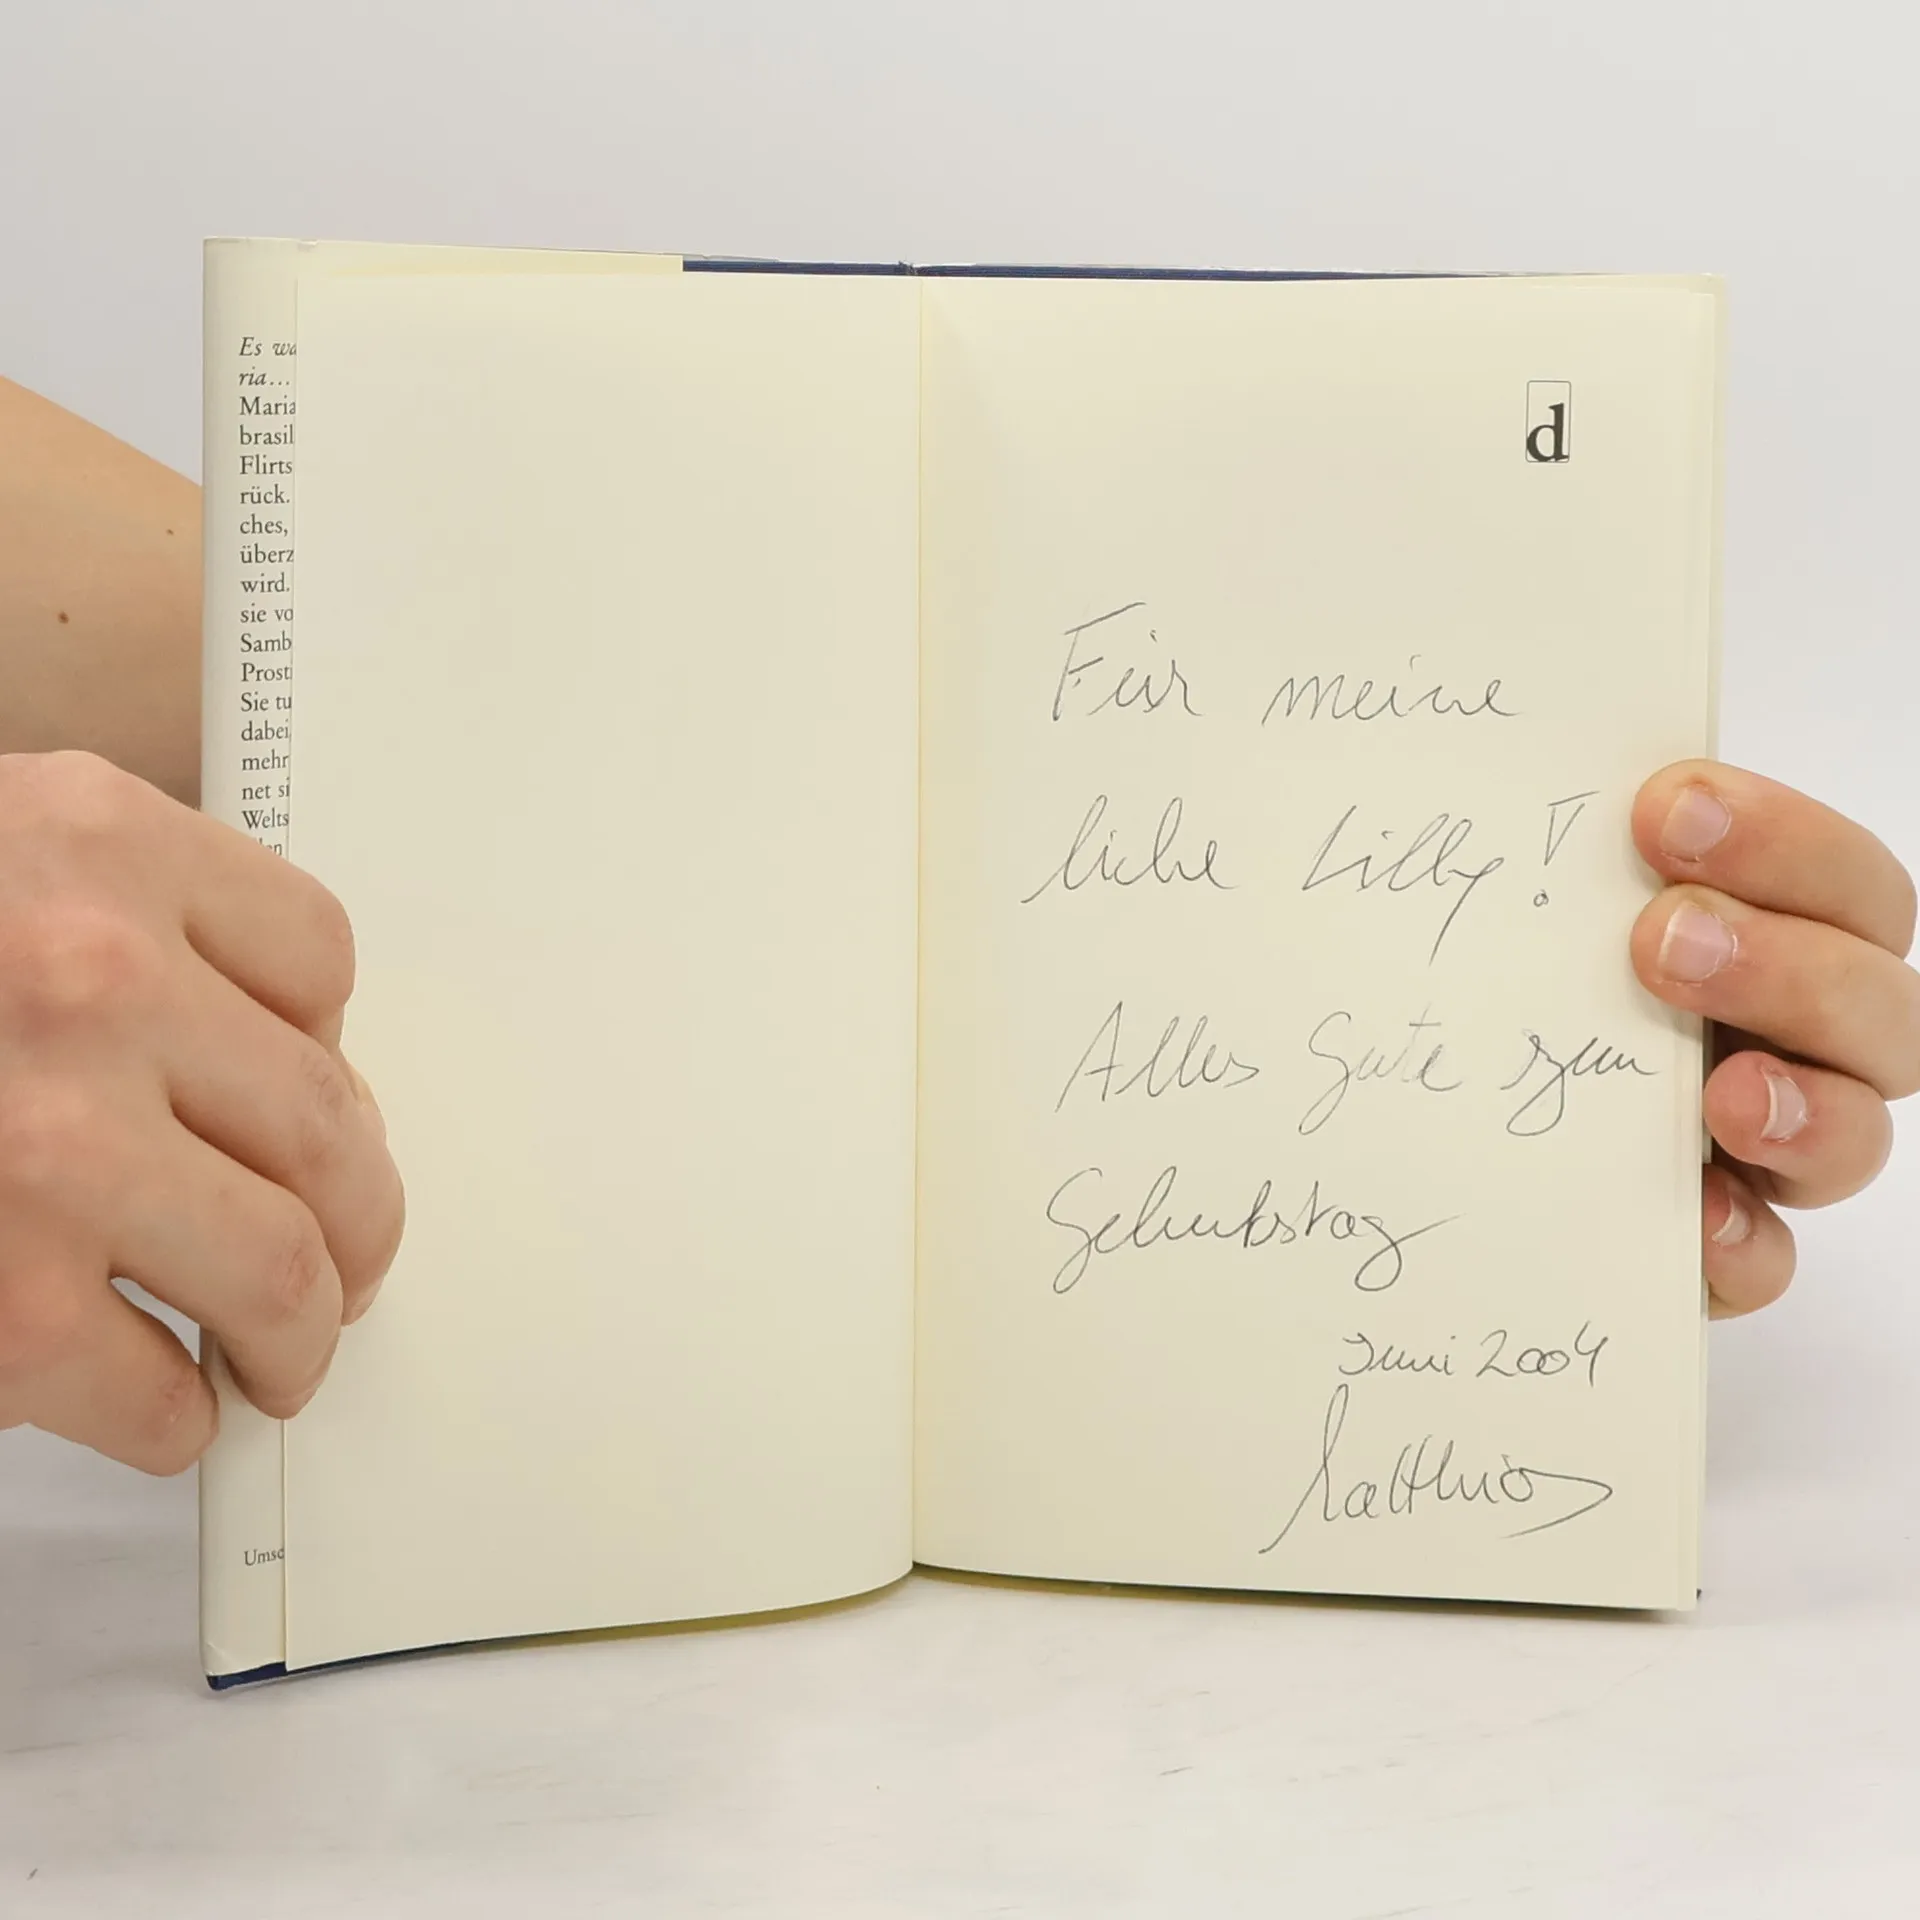 Es wa
ria...
Maria
brasil
Flirts
rück.
ches,
überz
wird.
sie vo
Samb
Prosti
Sie tu
dabei,
mehr
net si
Welts
Umsc
d
Für meine
liebe Lilly!
Alles Gute zum
Geburtstag
Juni 2004
Matthias